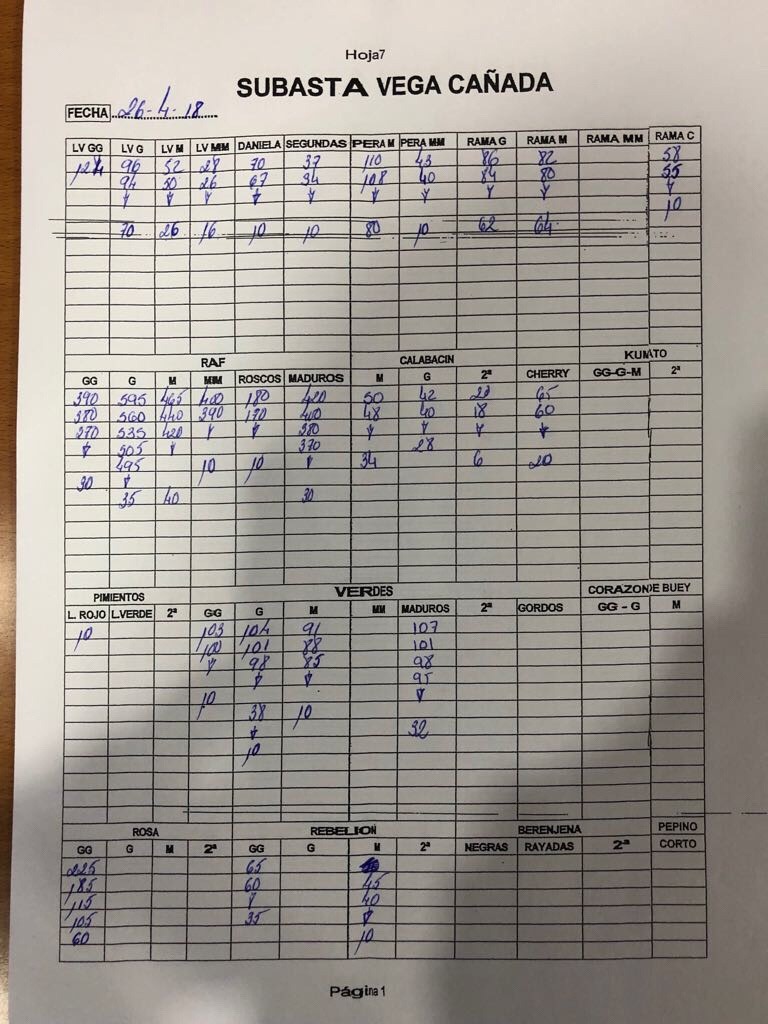 Hoja7
SUBASTA VEGA CAÑADA
FECHA 26-4-18
LV GG LV G LV M LV MM DANIELA SEGUNDAS PERA M PERA MM RAMA G RAMA M RAMA MM RAMA C
124 96 52 28 70 37 110 43 86 82 58
94 50 26 67 34 108 40 84 80 55
10
70 26 16 10 10 80 10 62 64
RAF CALABACIN KUMATO
GG G M MM ROSCOS MADUROS M G 2ª CHERRY GG-G-M 2ª
390 595 465 400 180 420 50 42 23 65
380 560 440 390 170 400 48 40 18 60
270 535 420 380
505 370 28
495 10 10 34 6 20
30
35 40 30
PIMIENTOS VERDES CORAZON DE BUEY
L. ROJO L.VERDE 2ª GG G M MM MADUROS 2ª GORDOS GG - G M
10 103 104 91 107
100 101 88 101
98 85 98
95
10
38 10
32
10
ROSA REBELION BERENJENA PEPINO
GG G M 2ª GG G M 2ª NEGRAS RAYADAS 2ª CORTO
225 65
185 60 45
115 40
105 35
60 10
Página 1